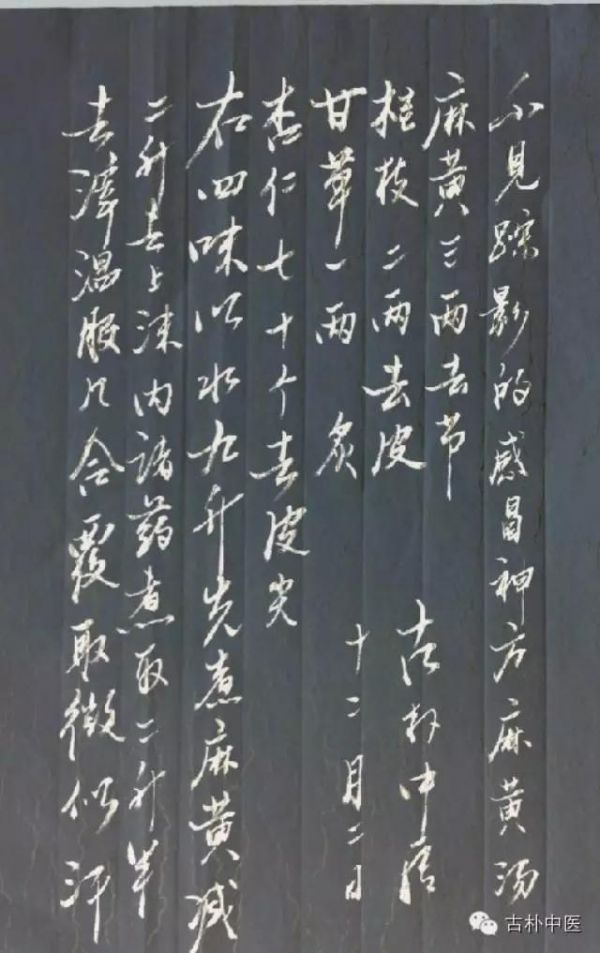 不见踪影的感冒神方麻黄汤
麻黄三两去节
桂枝二两去皮
甘草一两 炙
杏仁七十个去皮尖
右四味以水九升先煮麻黄减
二升去上沫内诸药煮取二升半
去滓温服八合覆取微似汗
古朴中医
十二月二日
古朴中医